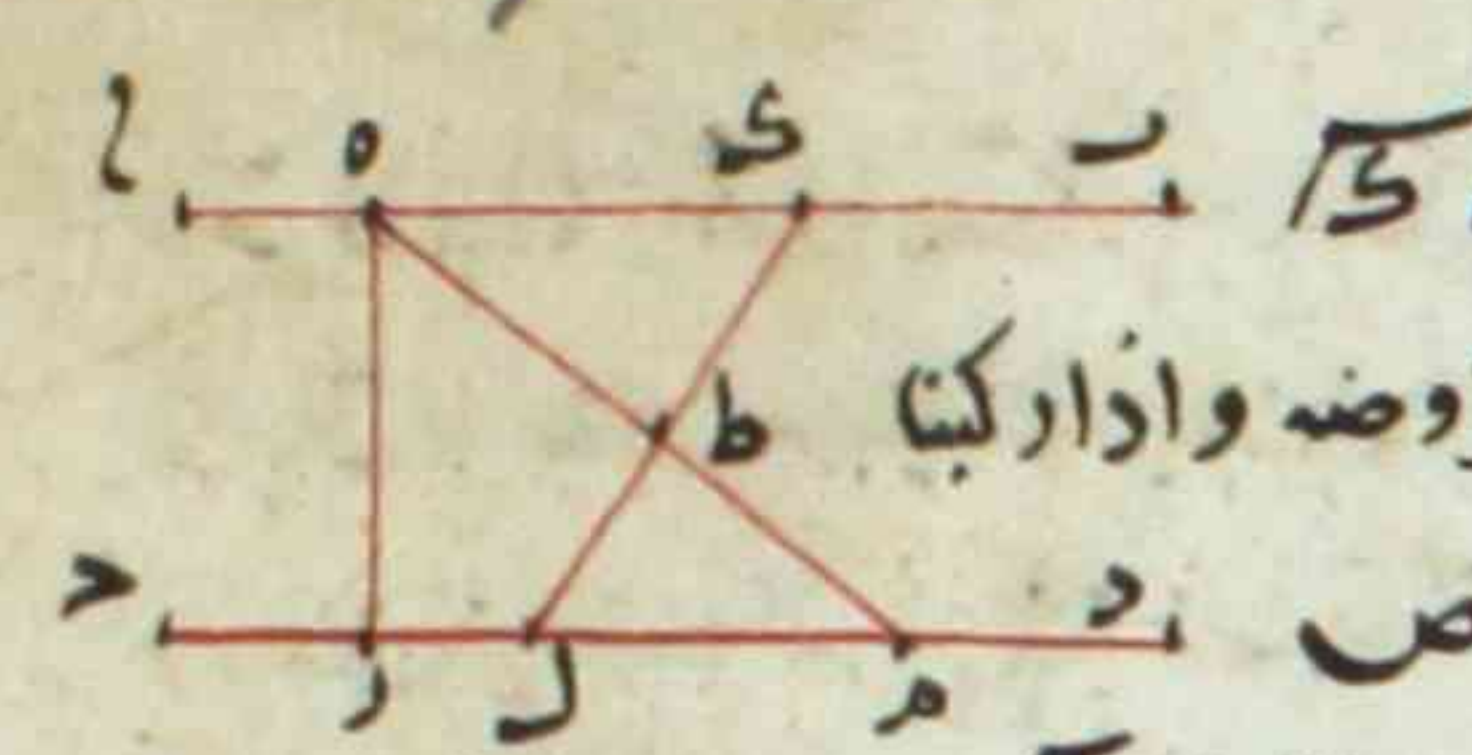 ا ه ى ب
ط
وضه واذا ركبنا
ح د
ر ل م